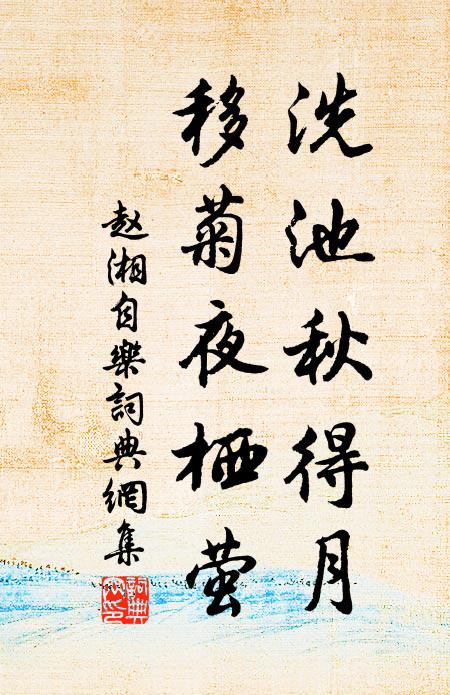 洗池秋得月
移菊夜栖萤
赵湘自樂詞典網集